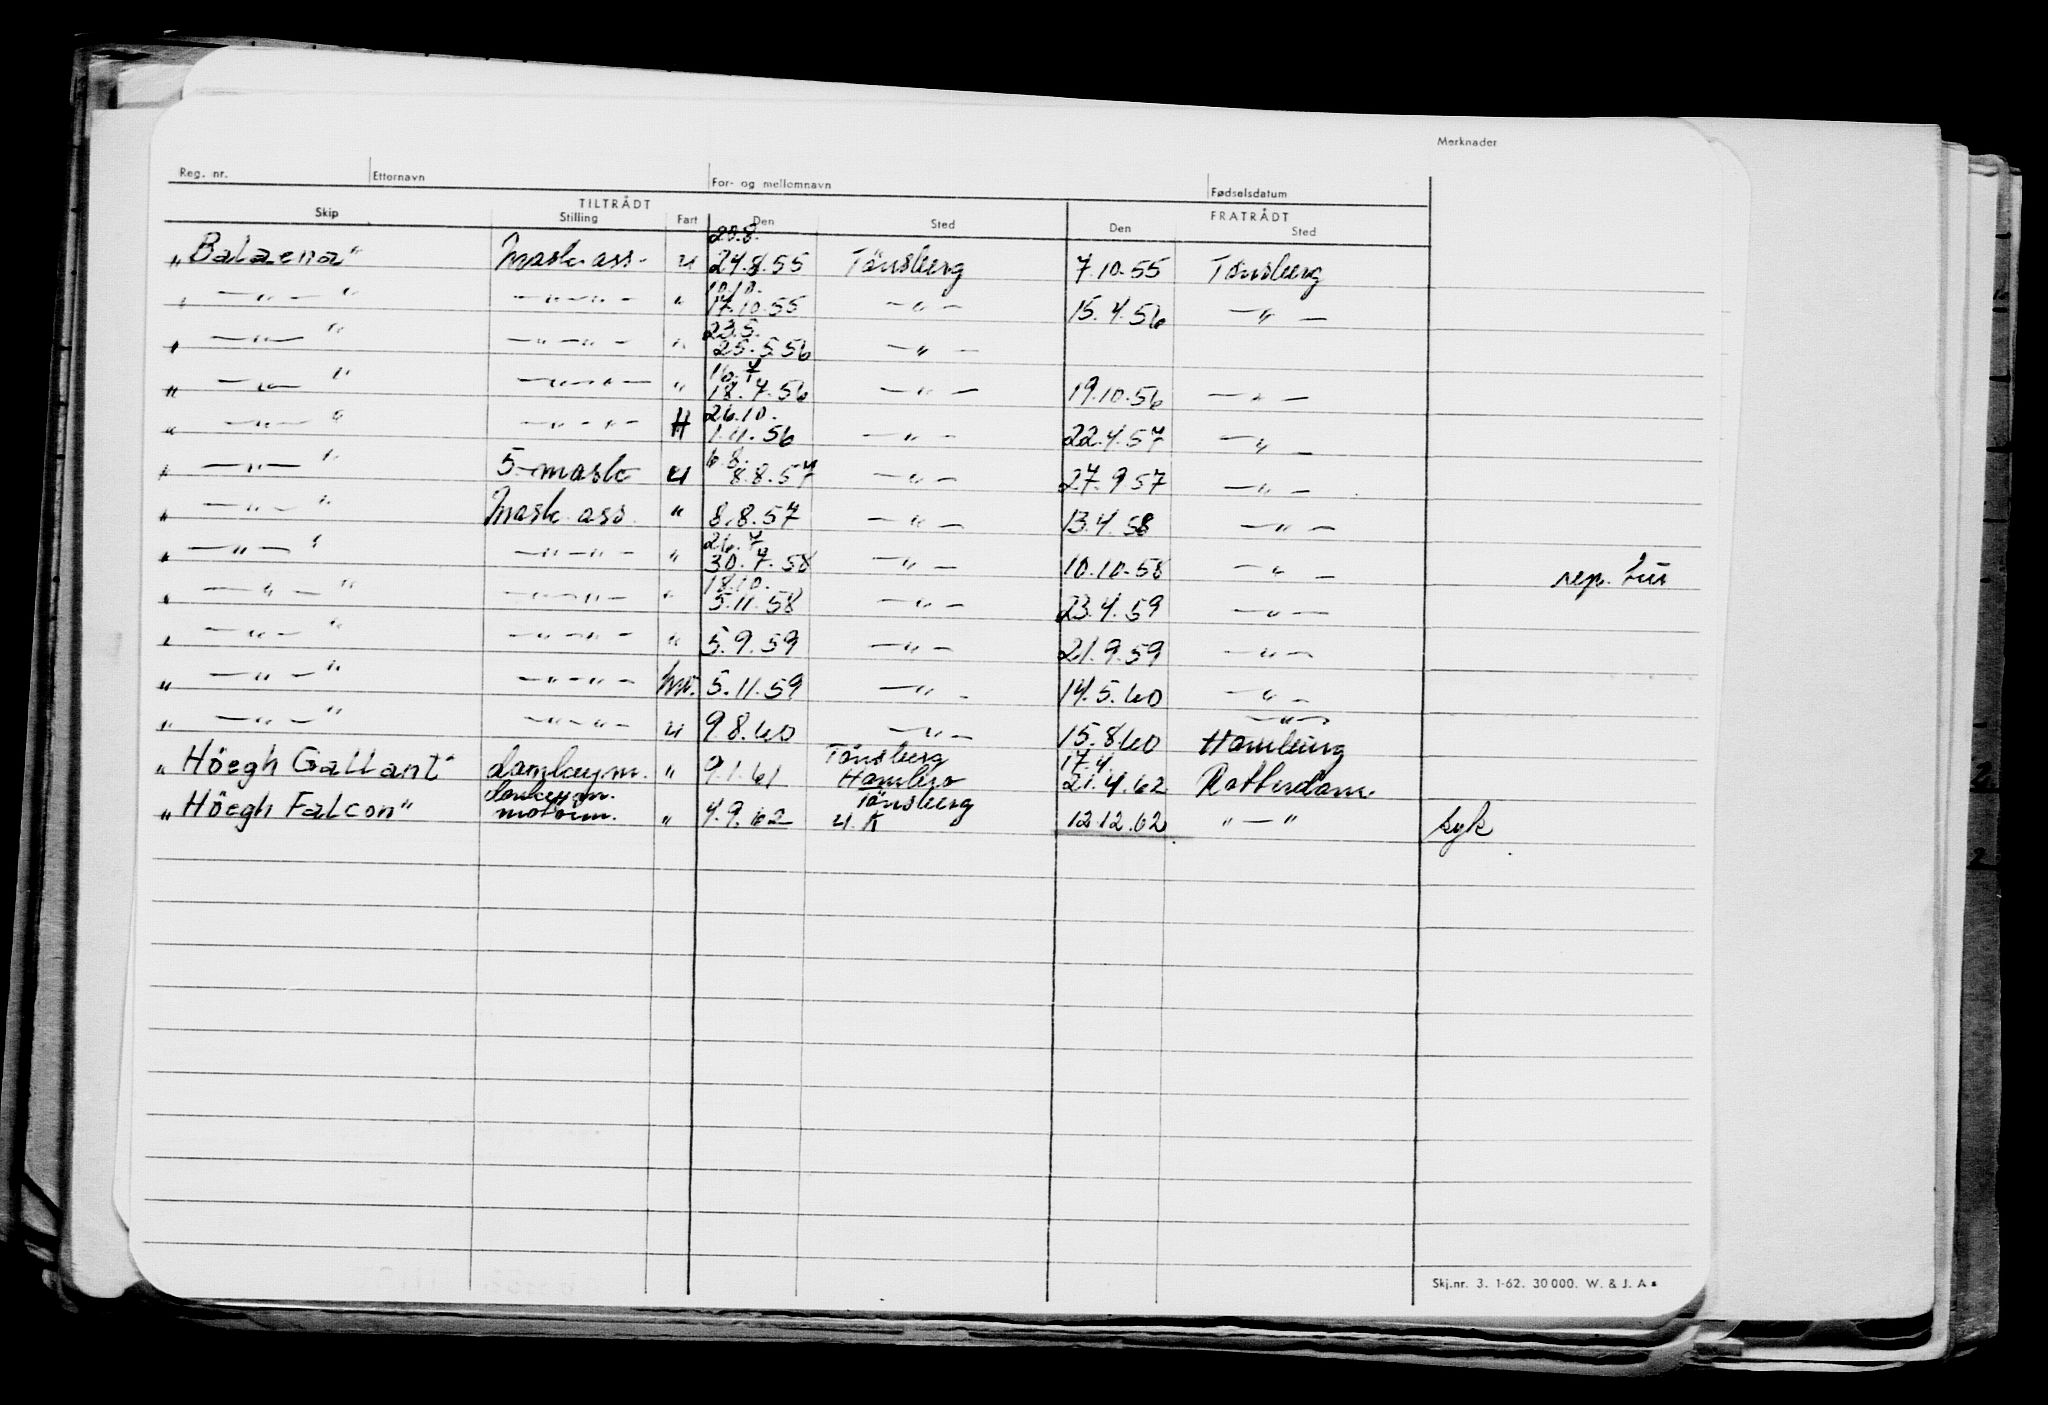 Merknader
Reg. nr. Etternavn For- og mellomnavn Fødselsdatum
TILTRÅDT FRATRÅDT
Skip Stilling Fart Den Sted Den Sted
20.8.
„Balaena" Mask. ass. u 24.8.55 Tönsberg 7.10.55 Tönsberg
10.10.
„ —„— " —„—„— " 17.10.55 —„— 15.4.56 —„—
23.5.
„ —„— " —„—„— " 25.5.56 —„—
16.7
„ —„— " —„—„— " 18.7.56 —„— 19.10.56 —„—
26.10.
„ —„— " —„—„— H 1.11.56 —„— 22.4.57 —„—
6.8.
„ —„— " 5-mask u 8.8.57 —„— 27.9.57 —„—
„ —„— " Mask. ass. " 8.8.57 —„— 13.4.58 —„—
26.7
„ —„— " —„—„— " 30.7.58 —„— 10.10.58 —„— rep. tur
18.10.
„ —„— " —„—„— " 5.11.58 —„— 23.4.59 —„—
„ —„— " —„—„— " 5.9.59 —„— 21.9.59 —„—
„ —„— " —„—„— 5.11.59 —„— 14.5.60 —„—
—„—
„ —„— " —„—„— u 9.8.60 —„— 15.8.60 Hamburg
Tönsberg 17.4.
„Höegh Gallant" donkeym. " 9.1.61 Hambro 21.4.62 Rotterdam
donkeym. Tönsberg
„Höegh Falcon" motorm. " 4.9.62 u.K 12.12.62 "—" syk
Skj.nr. 3. 1-62. 30 000. W. & J. A s